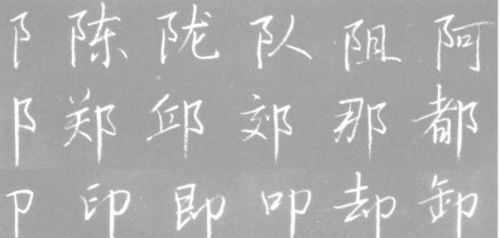 阝 陈 陇 队 阻 阿
阝 郑 邱 郊 那 都
卩 印 即 叩 却 卸